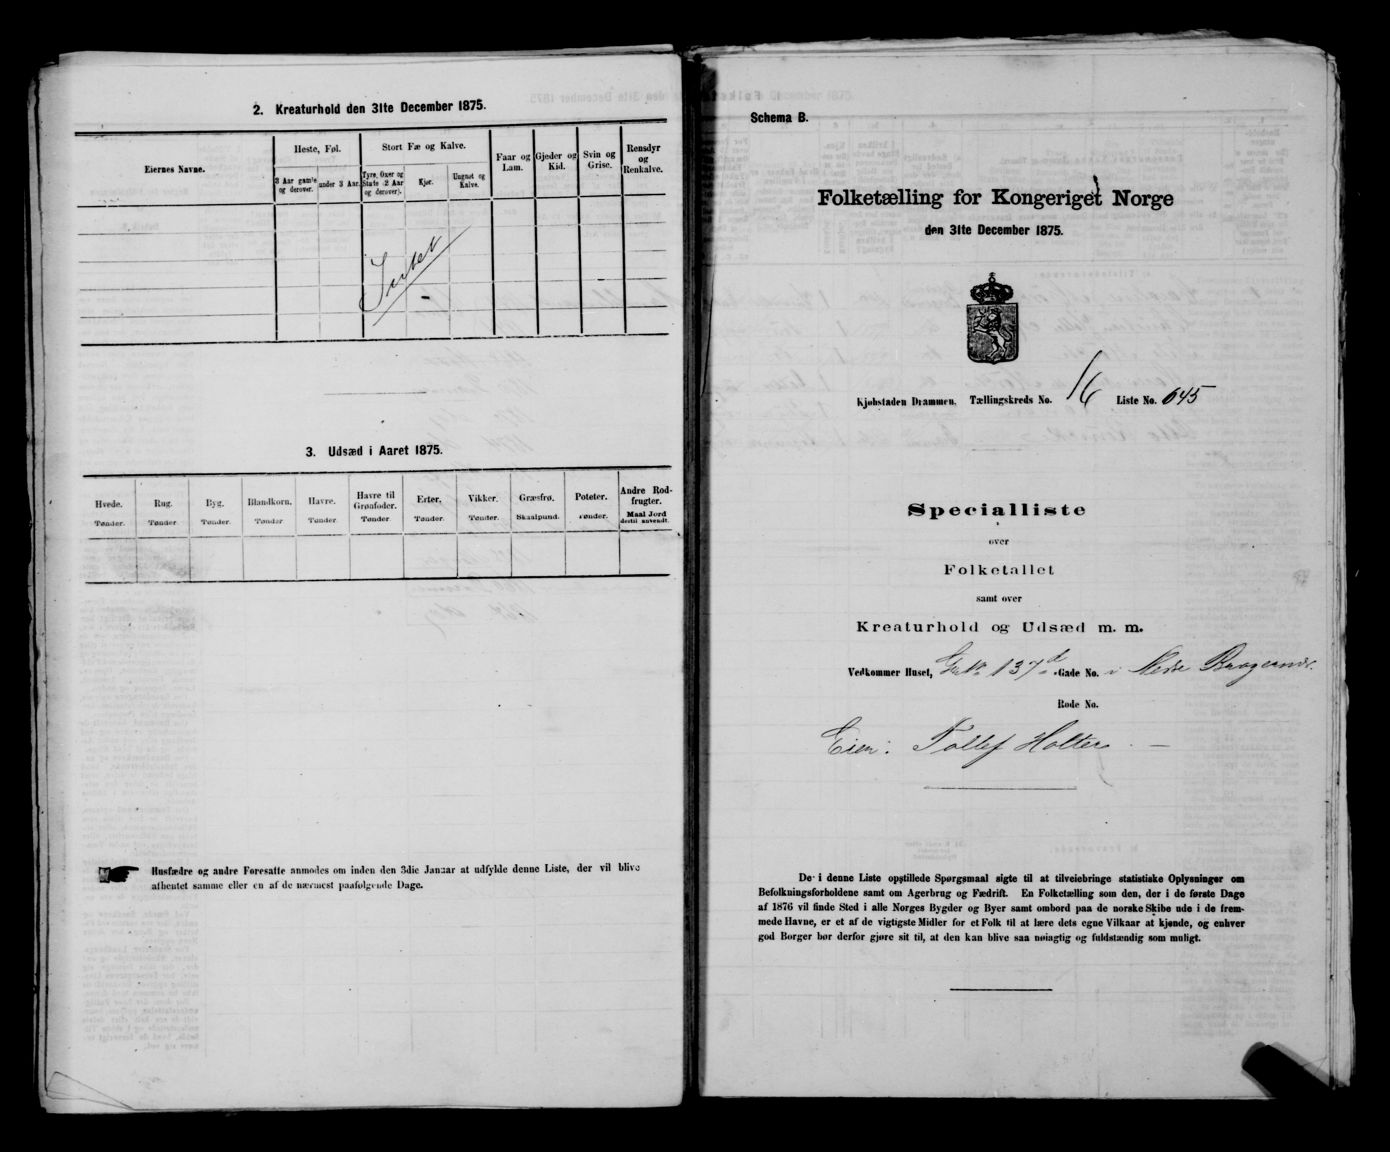 2. Kreaturhold den 31te December 1875.
Eiernes Navne.
Heste, Føl.
3 Aar gamle og derover.
under 3 Aar.
Stort Fæ og Kalve.
Tyre, Oxer og Stude (2 Aar og derover).
Kjør.
Ungnøt og Kalve.
Faar og Lam.
Gjeder og Kid.
Svin og Grise.
Rensdyr og Renkalve.
Intet
3. Udsæd i Aaret 1875.
Hvede. Rug. Byg. Blandkorn. Havre. Havre til Grønfoder. Erter. Vikker. Græsfrø. Poteter. Andre Rodfrugter.
Tønder. Tønder. Tønder. Tønder. Tønder. Tønder. Tønder. Tønder. Skaalpund. Tønder. Maal Jord dertil anvendt.
Husfædre og andre Foresatte anmodes om inden den 3die Januar at udfylde denne Liste, der vil blive
afhentet samme eller en af de nærmest paafølgende Dage.
Schema B.
Folketælling for Kongeriget Norge
den 31te December 1875.
Kjøbstaden Drammen. Tællingskreds No. 16 Liste No. 645
Specialliste
over
Folketallet
samt over
Kreaturhold og Udsæd m. m.
Vedkommer Huset, 137d Gade No. i Nedre Bragernæs.
Rode No.
Eier: Tollef Holter
De i denne Liste opstillede Spørgsmaal sigte til at tilveiebringe statistiske Oplysninger om
Befolkningsforholdene samt om Agerbrug og Fædrift. En Folketælling som den, der i de første Dage
af 1876 vil finde Sted i alle Norges Bygder og Byer samt ombord paa de norske Skibe ude i de frem-
mede Havne, er et af de vigtigste Midler for et Folk til at lære dets egne Vilkaar at kjende, og enhver
god Borger bør derfor gjøre sit til, at den kan blive saa nøiagtig og fuldstændig som muligt.